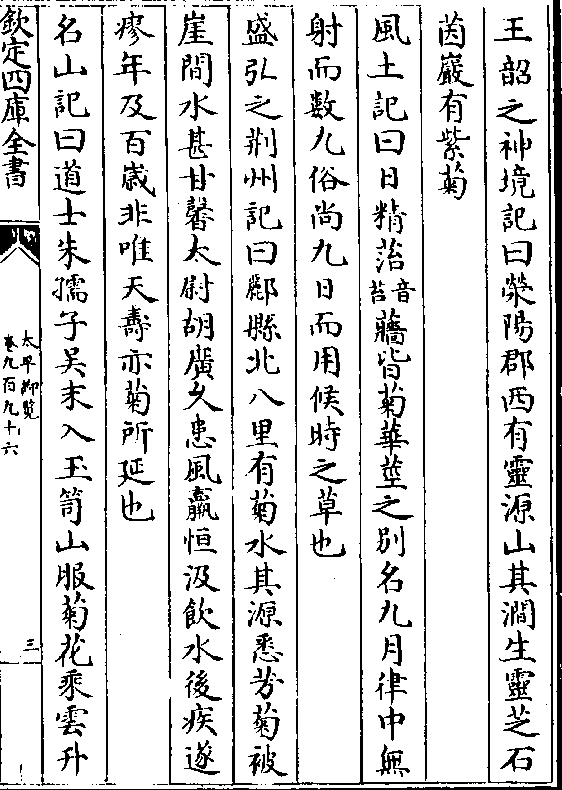 王韶之神境記曰滎陽郡西有靈源山其澗生靈芝石
茵巖有紫菊
風土記曰日精菭音苔蘠皆菊華莖之别名九月律中無
射而數九俗尚九日而用候時之草也
盛弘之荆州記曰酈縣北八里有菊水其源悉芳菊被
崖間水甚甘馨太尉胡廣久患風羸恒汲飲水後疾遂
瘳年及百歲非唯天壽亦菊所延也
名山記曰道士朱孺子吳末入玉笥山服菊花乘雲升
欽定四庫全書
太平御覽
卷九百九十六
三